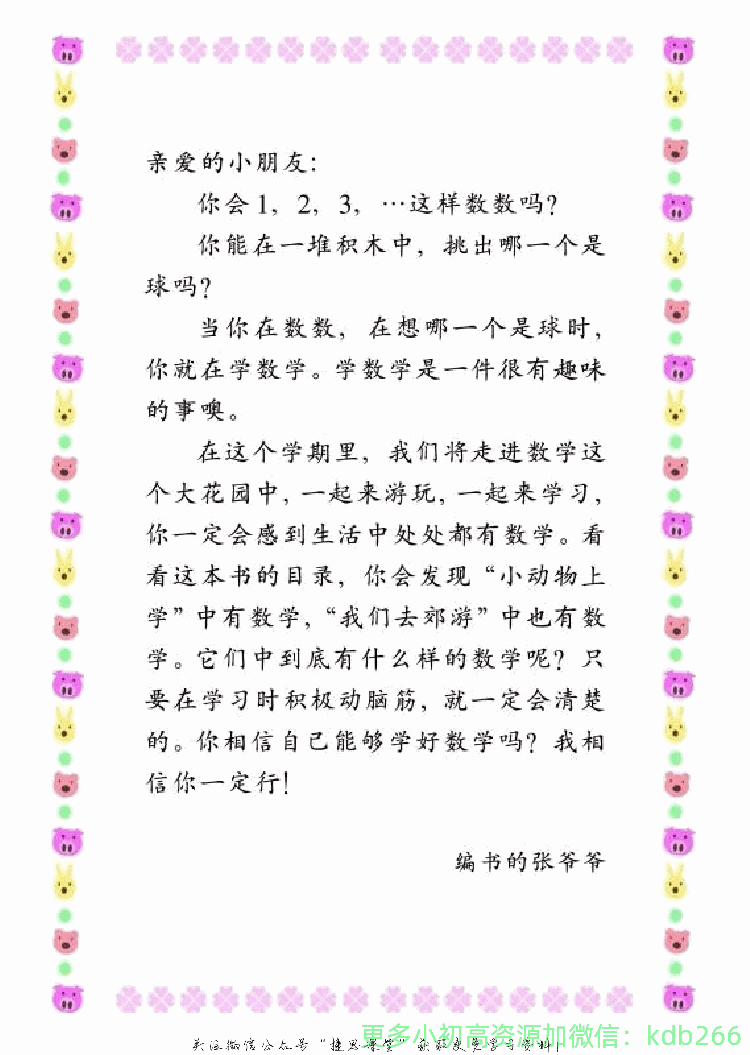 亲爱的小朋友：
你会1，2，3，…这样数数吗？
你能在一堆积木中，挑出哪一个是
球吗？
当你在数数，在想哪一个是球时，
你就在学数学。学数学是一件很有趣味
的事噢。
在这个学期里，我们将走进数学这
个大花园中，一起来游玩，一起来学习，
你一定会感到生活中处处都有数学。看
看这本书的目录，你会发现“小动物上
学”中有数学，“我们去郊游”中也有数
学。它们中到底有什么样的数学呢？只
要在学习时积极动脑筋，就一定会清楚
的。你相信自己能够学好数学吗？我相
信你一定行！
编书的张爷爷
更多小初高资源加微信：kdb266
关注微信公众号